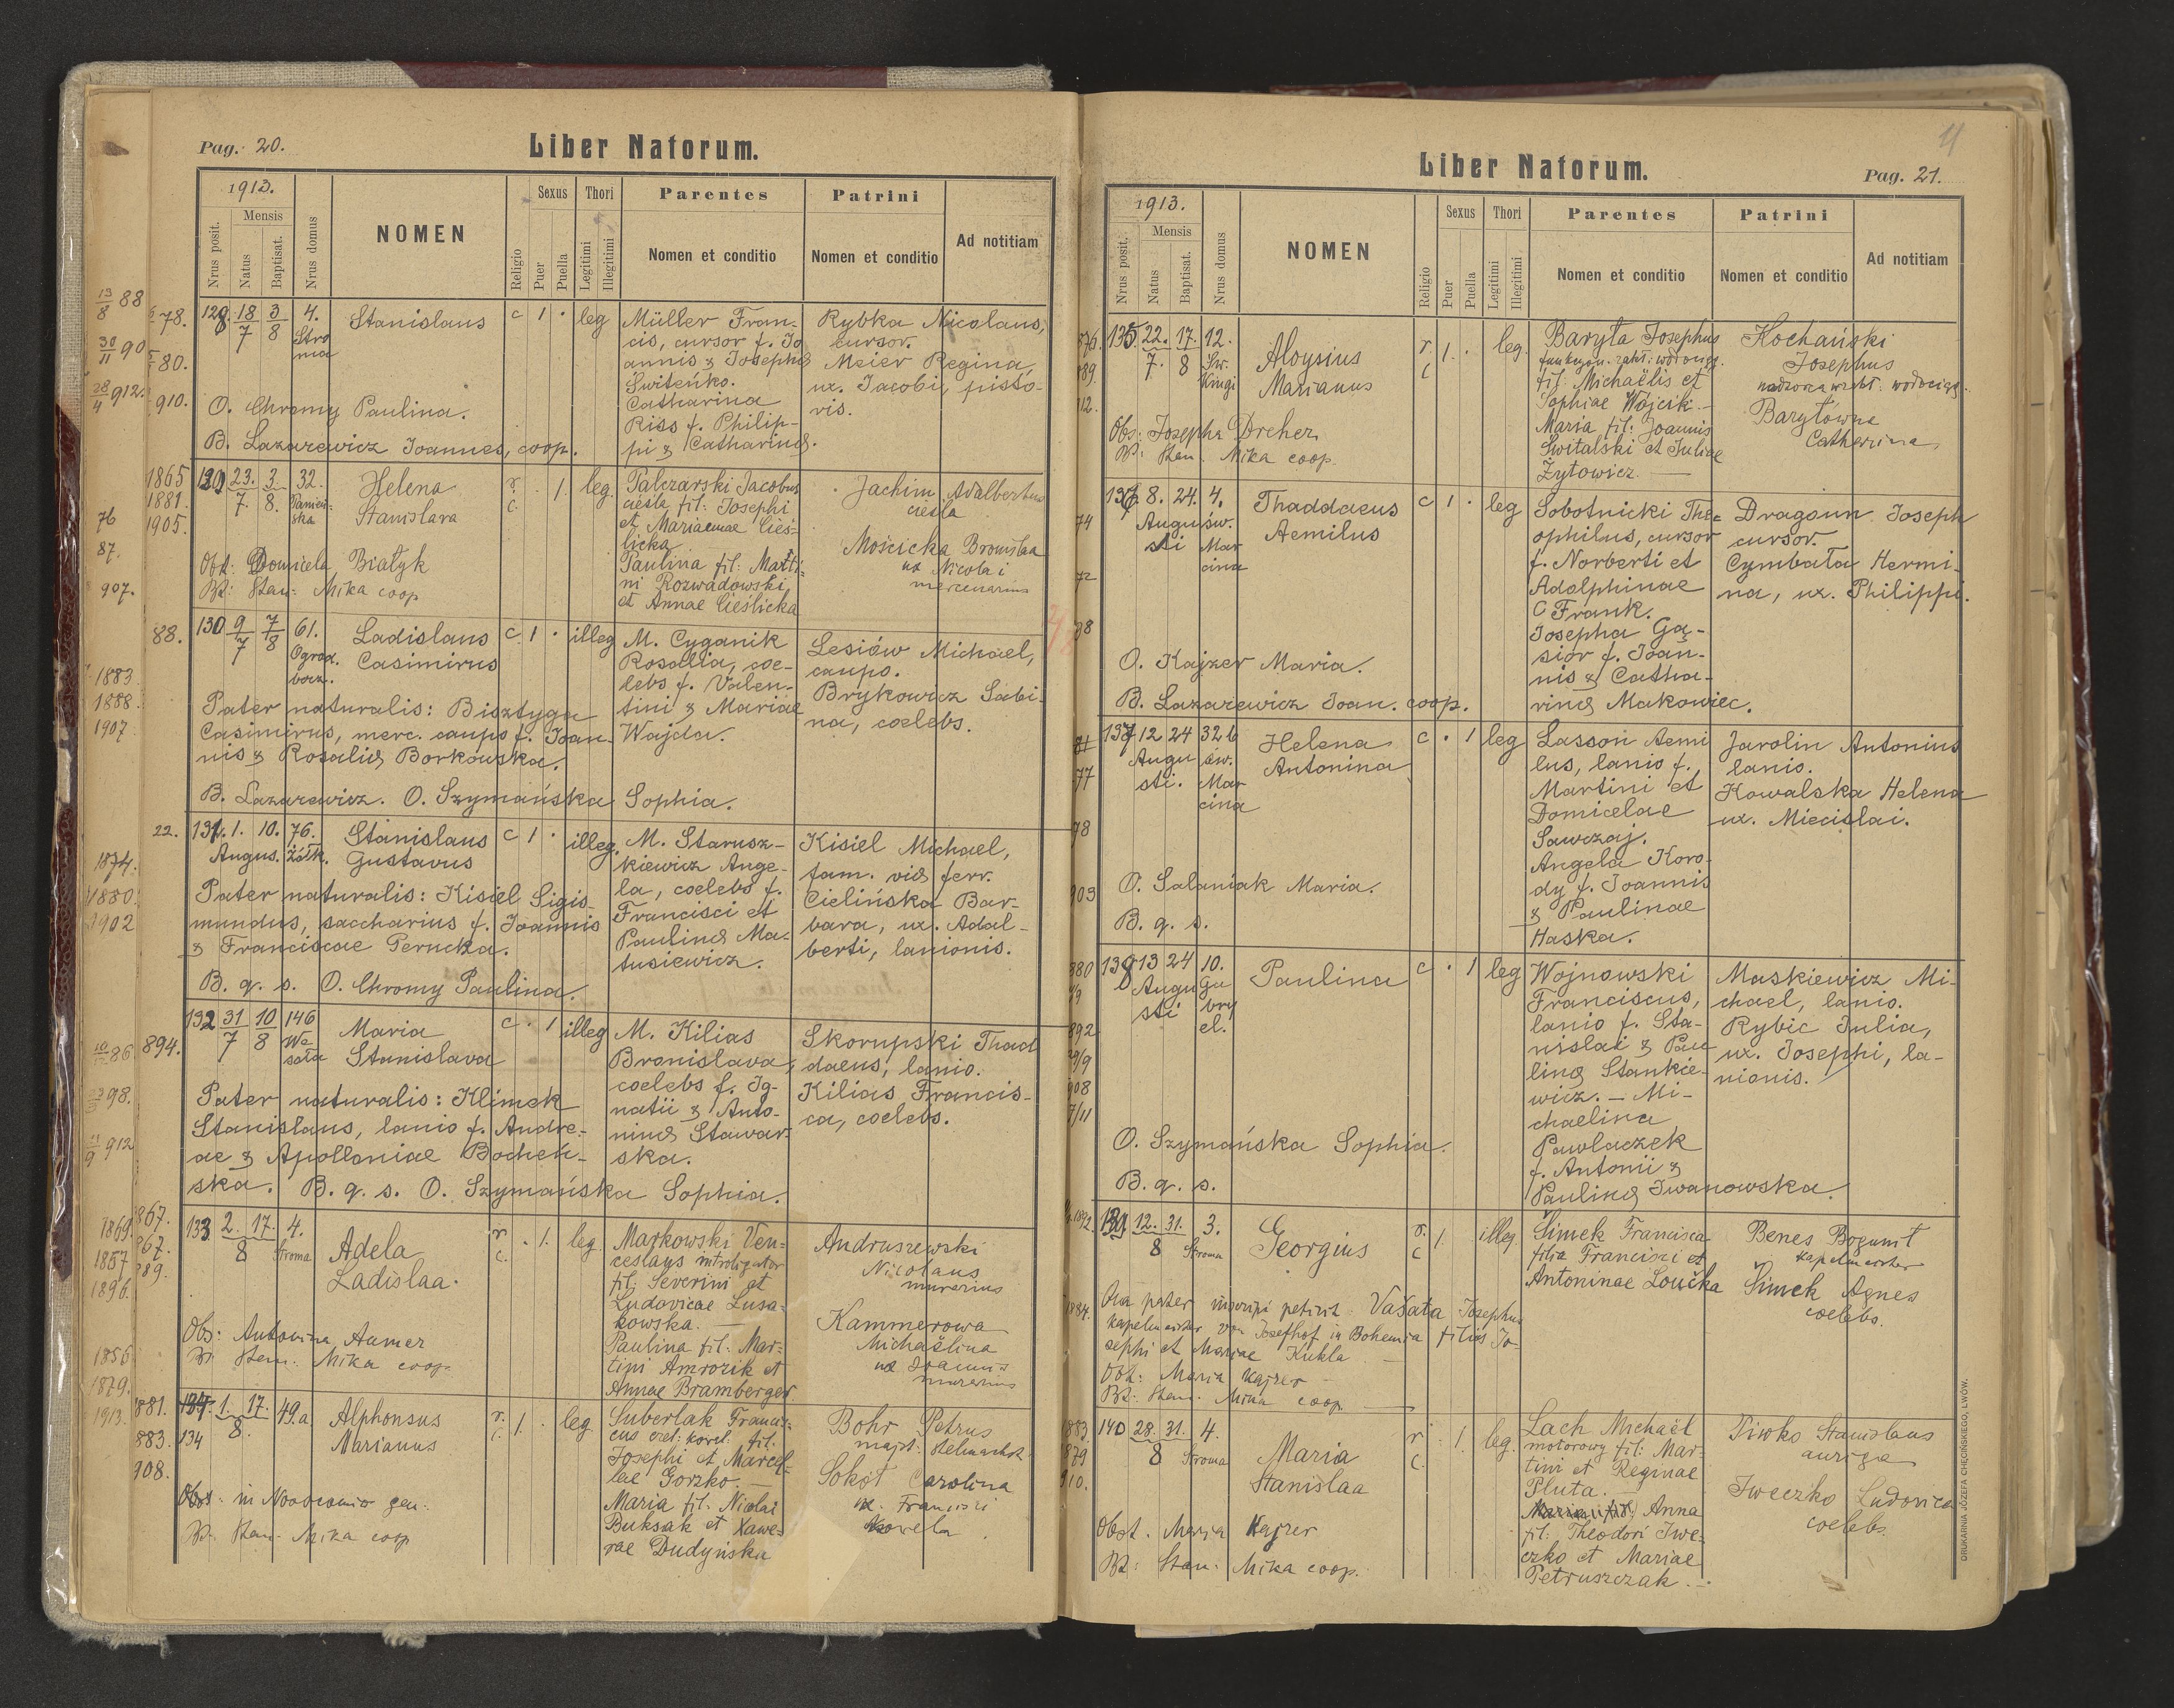 Pag. 20.
Liber Natorum.
1913.
Nrus posit.
Mensis
Natus
Baptisat.
Nrus domus
NOMEN
Religio
Sexus
Puer
Puella
Thori
Legitimi
Illegitimi
Parentes
Nomen et conditio
Patrini
Nomen et conditio
Ad notitiam
128 18/7 3/8 4. Stro
ma
Stanislaus
c 1 · leg
Müller Fran-
cis, cursor f. Jo
annis & Josephæ
Świteńko.
Catharina
Riss f. Philip-
pi & Catharinæ.
Rybka Nicolaus,
cursor.
Meier Regina,
ux. Jacobi, pisto-
ris.
O. Chromy Paulina.
B. Lazarewicz Joannes, coop.
129 23. 3 32.
7. 8.
Helena
Stanislava
r. c. · 1. leg.
Palczarski Jacobus
cieśla fil: Josephi
et Mariannae Cieś-
licka
Paulina fil: Marti-
ni Rozwadowski
et Annae Cieślicka
Jachim Adalbertus
cieśla
Mościcka Bronisłaa
ux Nicolai
mercenarius
Obst: Domicela Białyk
Bt: Stan: Mika coop
130 9/7 7/8 61.
Ogrod.
Ladislaus
Casimirus
c 1 · illeg
M. Cyganik
Rosalia, coe-
lebs f. Valen-
tini & Mariae
Wajda.
Lesiów Michael,
caupo.
Brykowicz Sabi-
na, coelebs.
Pater naturalis: Bisztyga
Casimirus, merc. caupo f. Joan-
nis & Rosaliæ Borkowska.
B. Lazarewicz. O. Szymańska Sophia.
131. 1. 10. 76.
Augus. Żółk.
Stanislaus
Gustavus
c 1 · illeg.
M. Starusz-
kiewicz Ange-
la, coelebs f.
Francisci et
Paulinæ Ma-
tusiewicz.
Kisiel Michael,
fam. viæ ferr.
Cielińska Bar-
bara, ux. Adal-
berti, lanionis.
Pater naturalis: Kisiel Sigis-
mundus, saccharius f. Joannis
& Franciscae Perucka.
B. q. s. O. Chromy Paulina.
132 31/7 10/8 146
We
soła
Maria
Stanislava
c · 1 illeg
M. Kilias
Bronislava,
coelebs f. Ig-
natii & Anto-
ninæ Stawar-
ska.
Skorupski Thad
daeus, lanio.
Kilias Francis-
ca, coelebs.
Pater naturalis: Klimek
Stanislaus, lanio f. Andre-
ae & Apolloniae Bocheń-
ska. B. q. s. O. Szymańska Sophia.
133 2. 17. 4.
8 Stroma
Adela
Ladislaa.
r. c. · 1. leg.
Markowski Ven-
ceslaus introligator
fil: Severini et
Ludovicae Lusa-
kowska. —
Paulina fil: Mar-
tini Amrozik et
Annae Bramberger
Andruszewski
Nicolaus
murarius
Kammerowa
Michaëlina
ux Joannis
murarius
Obs: Antonina Aumer
Bt: Stan: Mika coop.
134. 1. 17. 49.a
8.
134
Alphonsus
Marianus
r. c. 1. · leg
Suberlak Francis-
cus fil:
Josephi et Marcel-
lae Gorzko. —
Maria fil: Nicolai
Buksak et Xawe-
rae Dudyńska
Bohr Petrus
Sokół Carolina
ux. Francisci
Obst: in Nosocomio gen:
Bt: Stan: Mika coop
Liber Natorum.
Pag. 21.
1913.
Nrus posit.
Mensis
Natus
Baptisat.
Nrus domus
NOMEN
Religio
Sexus
Puer
Puella
Thori
Legitimi
Illegitimi
Parentes
Nomen et conditio
Patrini
Nomen et conditio
Ad notitiam
135. 22. 17. 12.
7. 8 Św.
Kingi
Aloysius
Marianus
r c 1. · leg.
Baryła Josephus
fil: Michaëlis et
Sophiae Wójcik. —
Maria fil: Joannis
Świtalski et Juliae
Żytowicz. —
Kochański
Josephus
Barytówna
Catharina
Obs: Josepha Dreher
Bt: Stan. Mika coop.
136 8. 24. 4.
Augu św.
sti Mar
cina
Thaddaeus
Aemilus
c 1 · leg
Sobotnicki The-
ophilus, cursor
f. Norberti et
Adolphinae
Frank.
Josepha Gą-
sior f. Joan-
nis & Catha-
rinæ Makowiec.
Dragoun Joseph
cursor.
Cymbała Hermi-
na, ux. Philippi.
O. Kajzer Maria.
B. Lazarewicz Joan. coop.
137 12 24 32 b
Augu św.
sti. Mar
cina
Helena
Antonina
c · 1 leg
Lassoń Aemi
lus, lanio f.
Martini et
Domicelae
Sawczaj.
Angela Koro-
dy f. Joannis
& Paulinae
Haska.
Jarolin Antonius
lanio.
Kowalska Helena
ux. Miecislai.
O. Salaniak Maria.
B. q. s.
138 13 24 10.
Augu Ga
sti bry
el.
Paulina
c · 1 leg
Wojnowski
Franciscus,
lanio f. Sta-
nislai & Pau
linæ Stankie-
wicz. — Mi-
chaelina
Pawlaczek
f. Antonii &
Paulinæ Iwanowska.
Maskiewicz Mi-
chael, lanio.
Rybic Julia,
ux. Josephi, la-
nionis.
O. Szymańska Sophia.
B. q. s.
139 12. 31. 3.
8 Stroma
Georgius
r. c 1. · illeg.
Šimek Francisca
filia Francisci et
Antoninae Loučka
Benes Bogumił
kapelmeister
Šimek Agnes
coelebs.
Qua pater inscripi petivit: Vašata Josephus
kapelmeister von Josefhof in Bohemia filius Jo-
sephi et Mariae Kukla —
Obt: Maria Kajzer —
Bt: Stan: Mika coop —
140 28. 31. 4.
8 Stroma
Maria
Stanislaa
r c. · 1. leg.
Lach Michaël
motorowy fil: Mar-
tini et Reginae
Pluta. —
Anna
fil: Theodori Iwe-
czko et Mariae
Petruszczak. —
Piwko Stanislaus
auriga
Iweczko Ludovica
coelebs.
Obst. Maria Kajzer
Bt: Stan: Mika coop.
DRUKARNIA JÓZEFA CHĘCIŃSKIEGO, LWÓW.